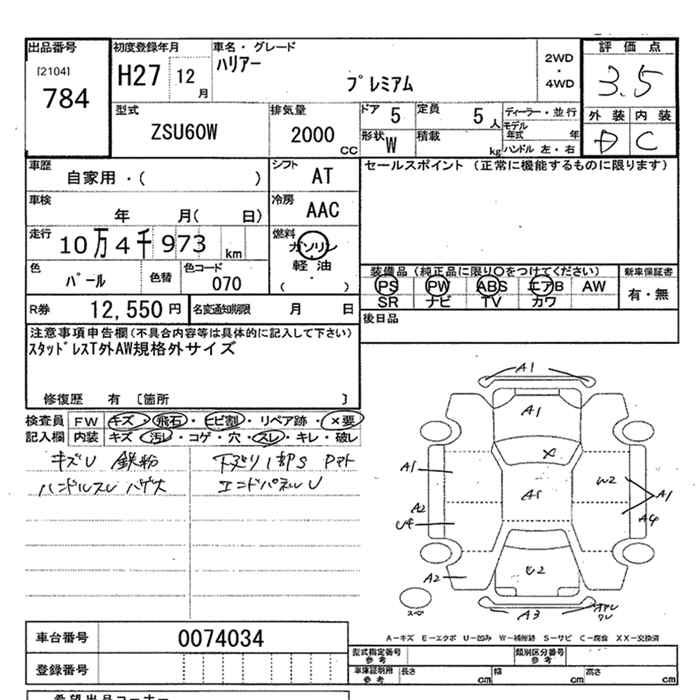 出品番号 初度登録年月 車名・グレード 評価点
[2104] H27 12月 ハリアー プレミアム 2WD・4WD 3.5
784
型式 排気量 ドア 5 定員 5人 ディーラー・並行 外装 内装
ZSU60W 2000cc 形状 W 積載 kg モデル年式 年 D C
ハンドル 左・右
車歴 自家用・( ) シフト AT セールスポイント (正常に機能するものに限ります)
車検 年 月( 日) 冷房 AAC
走行 10万4千973km 燃料 ガソリン・軽油・( )
色 パール 色替 色コード 070 装備品(純正品に限り○をつけてください) 新車保証書
PS PW ABS エアB AW 有・無
SR ナビ TV カワ
R券 12,550円 名変通知期限 月 日 後日品
注意事項申告欄(不具合内容等は具体的に記入して下さい)
スタッドレスT外AW規格外サイズ
修復歴 有 [箇所 ]
検査員 FW キズ・飛石・ヒビ割・リペア跡・×要
記入欄 内装 キズ・汚レ・コゲ・穴・スレ・キレ・破レ
キズU 鉄粉 下廻り1部S Pマト
ハンドルスレ ハゲス エンドパネルU
A1
A1
X
A1 W2
A1 A1
A2 A4
U4
A2 U2
スペ A3
A-キズ E-エクボ U-凹み W-補修跡 S-サビ C-腐食 XX-交換済
車台番号 0074034
型式指定番号 参考 類別区分番号 参考
登録番号 車庫証明用 参考 長さ cm 幅 cm 高さ cm
希望出品コーナー